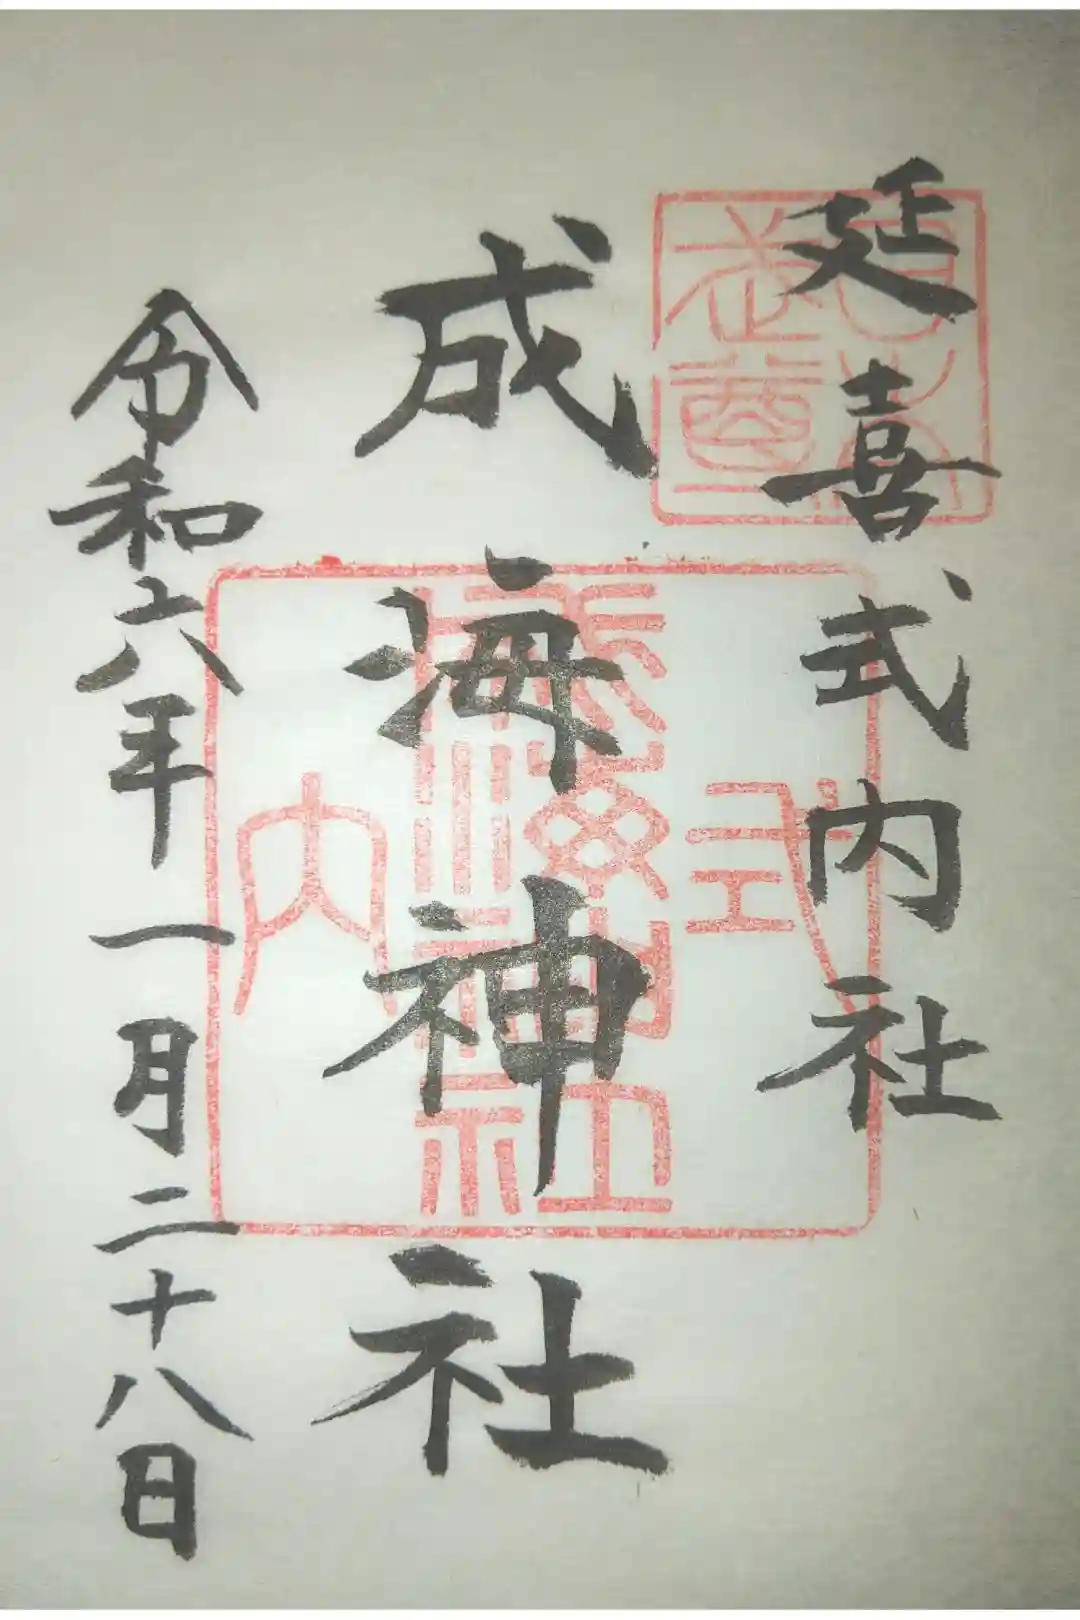 延喜式内社
成海神社
令和六年一月二十八日
式内
成海神社